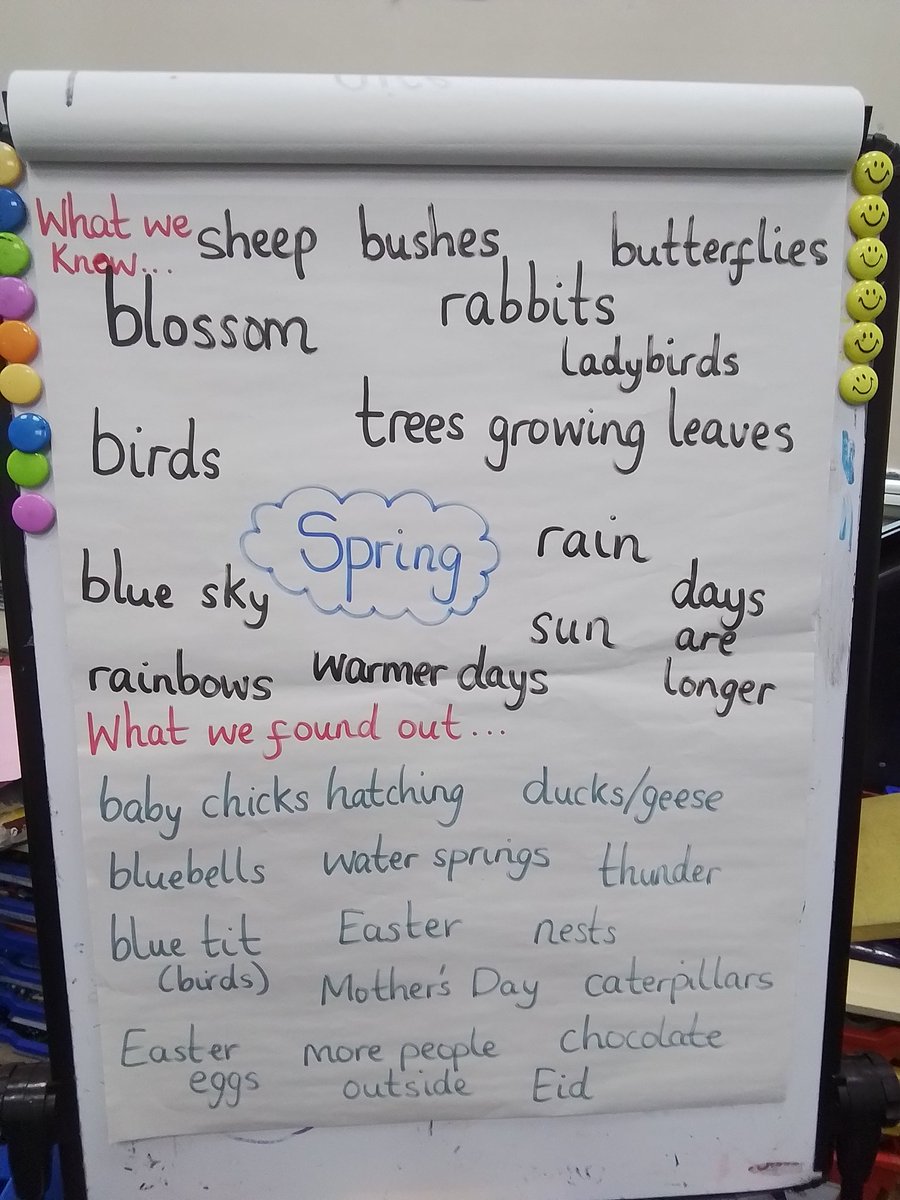 What we
Know...
sheep bushes butterflies
blossom rabbits
ladybirds
birds trees growing leaves
Spring
rain
blue sky
days
are
longer
sun
rainbows warmer days
What we found out...
baby chicks hatching ducks/geese
bluebells water springs thunder
blue tit
(birds)
Easter nests
Mother's Day caterpillars
Easter
eggs
more people
outside
chocolate
Eid